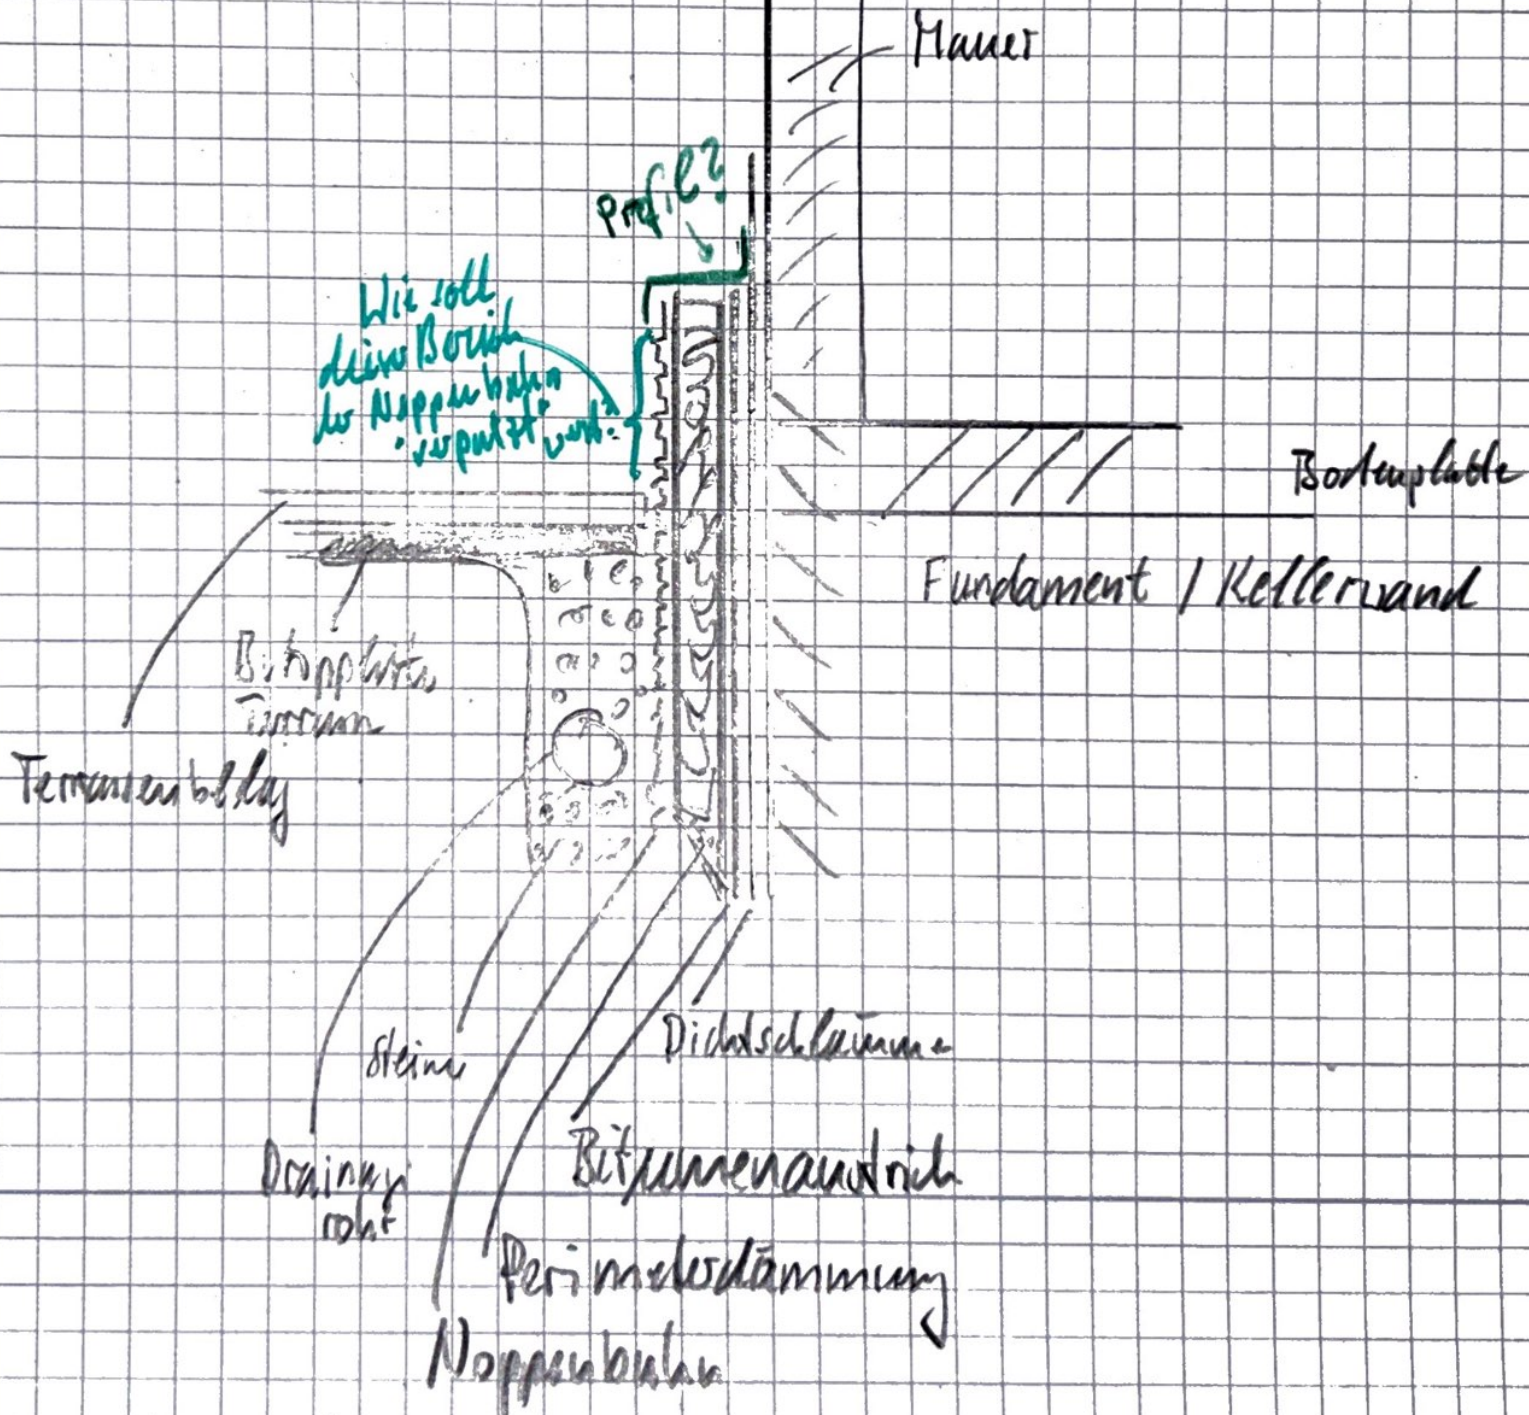 Mauer
Profil?
Wie soll
dieser Bereich
der Noppenbahn
"verputzt" werd.?
Bodenplatte
Fundament / Kellerwand
Betonplatte
Terrasse
Terrassenbelag
Steine
Dichtschlämme
Drainage
rohr
Bitumenanstrich
Perimeterdämmung
Noppenbahn